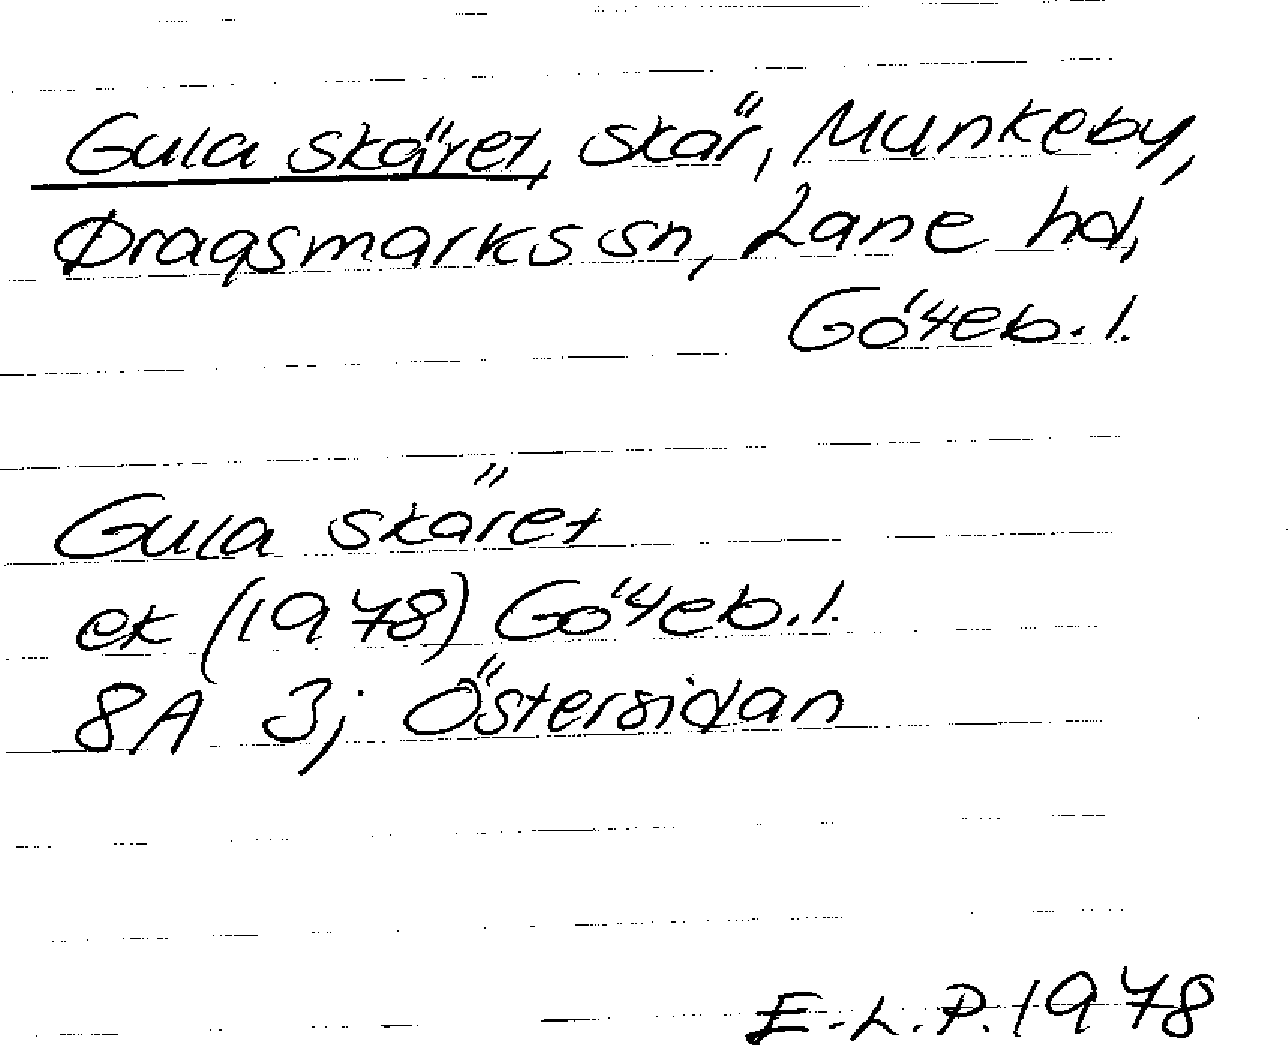 Gula skäret, skär, Munkeby,
Dragsmarks sn, Lane hd,
Göteb. l.
Gula skäret
ek (1978) Göteb. l.
8A 3; Östersidan
E.L.P. 1978